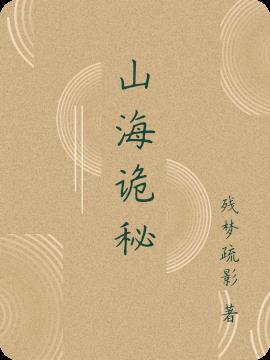 山海诡秘
残梦疏影 著